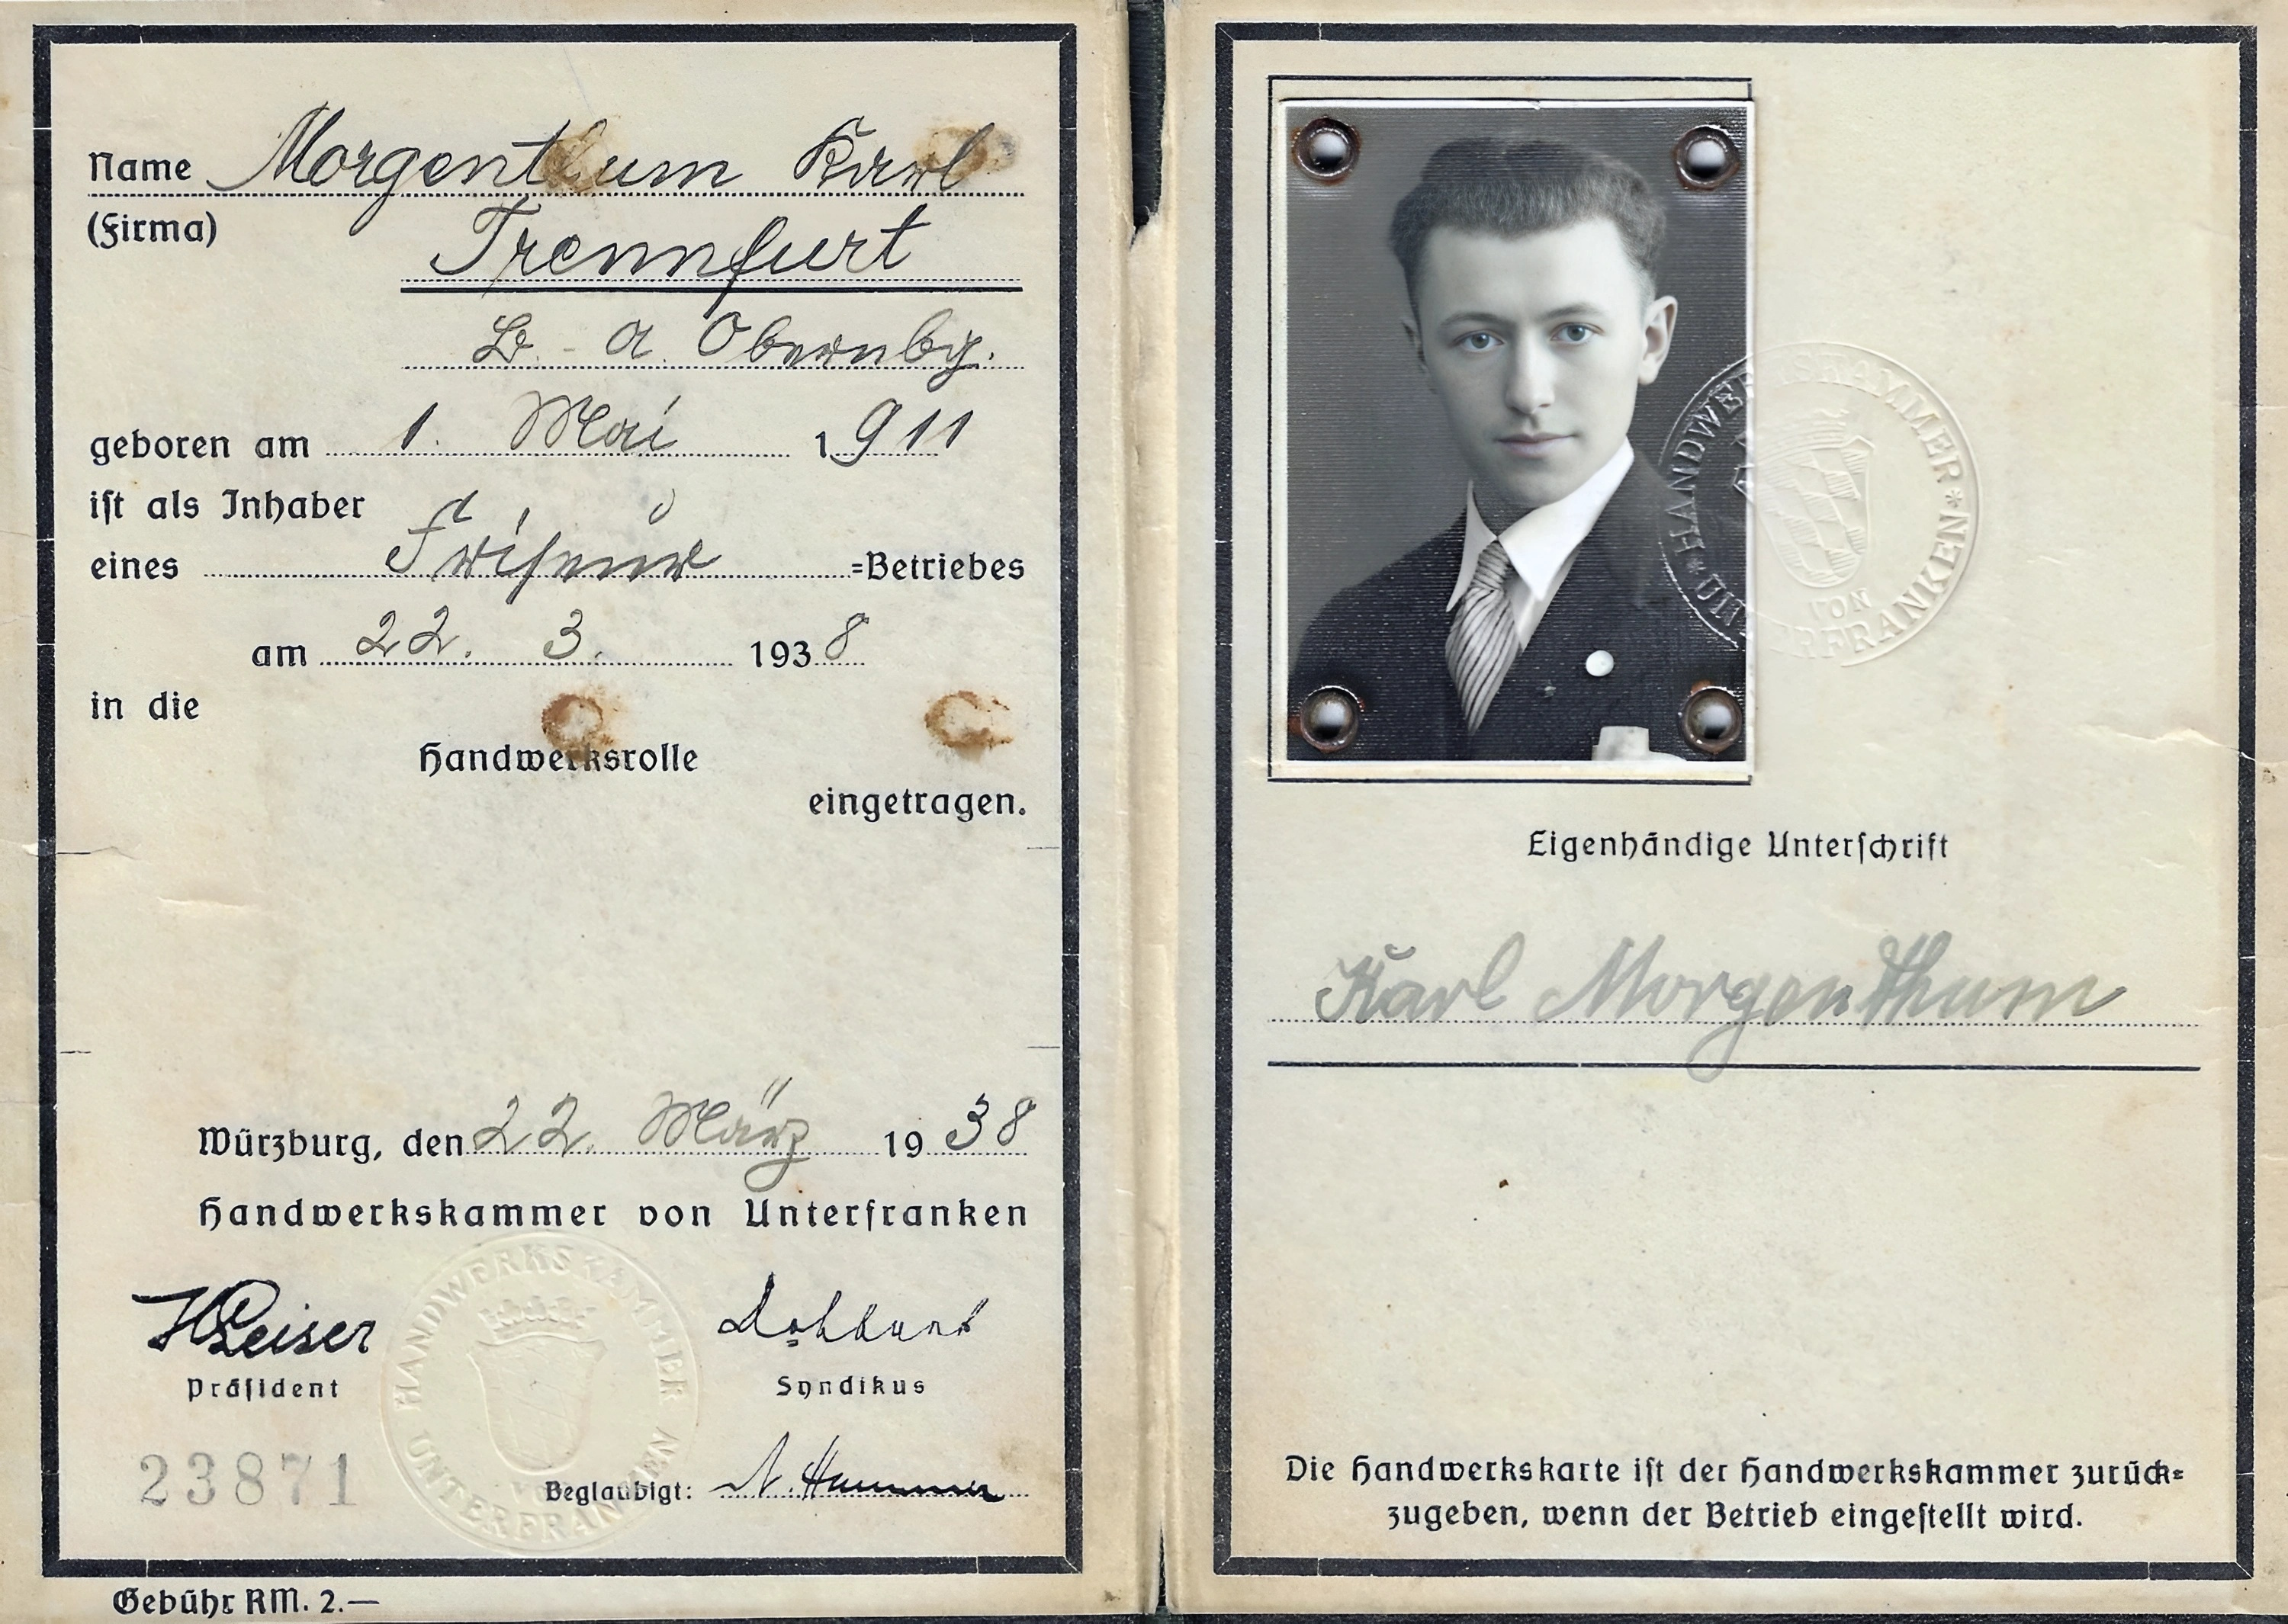 Name Morgenthum Karl
(Firma)
Trennfurt
B. - A. Obernbg.
geboren am 1. Mai 1911
ist als Inhaber
eines Friseur =Betriebes
am 22. 3. 1938
in die
Handwerksrolle
eingetragen.
Würzburg, den 22. März 1938
Handwerkskammer von Unterfranken
HANDWERKSKAMMER
VON
UNTERFRANKEN
HLeiser
Präsident
Syndikus
23871
Beglaubigt: N. Hammer
Gebühr RM. 2.—
HANDWERKSKAMMER
VON
UNTERFRANKEN
Eigenhändige Unterschrift
Karl Morgenthum
Die Handwerkskarte ist der Handwerkskammer zurück=
zugeben, wenn der Betrieb eingestellt wird.